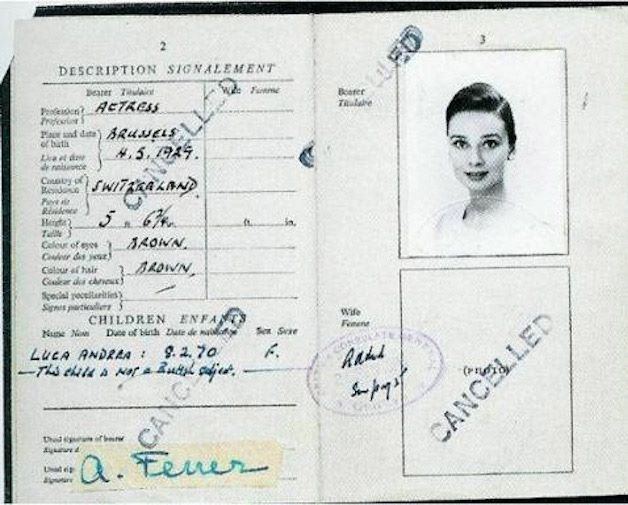 2
DESCRIPTION SIGNALEMENT
Bearer Titulaire Wife Femme
Profession Profession } ACTRESS
Place and date of birth } BRUSSELS
Lieu et date de naissance 4.5.1929.
Country of Residence } SWITZERLAND
Pays de Résidence
Height Taille } 5 6¾ ft. in.
Colour of eyes Couleur des yeux } BROWN.
Colour of hair Couleur des cheveux } BROWN.
Special peculiarities Signes particuliers }
CHILDREN ENFANTS
Name Nom Date of birth Date de naissance Sex Sexe
LUCA ANDREA : 8.2.70 F.
This child is not a British subject.
Usual signature of bearer
Signature
Usual
Signature
A. Ferrer
CANCELLED
CANCELLED
3
Bearer
Titulaire
CANCELLED
Wife
Femme
(PHOTO)
CANCELLED